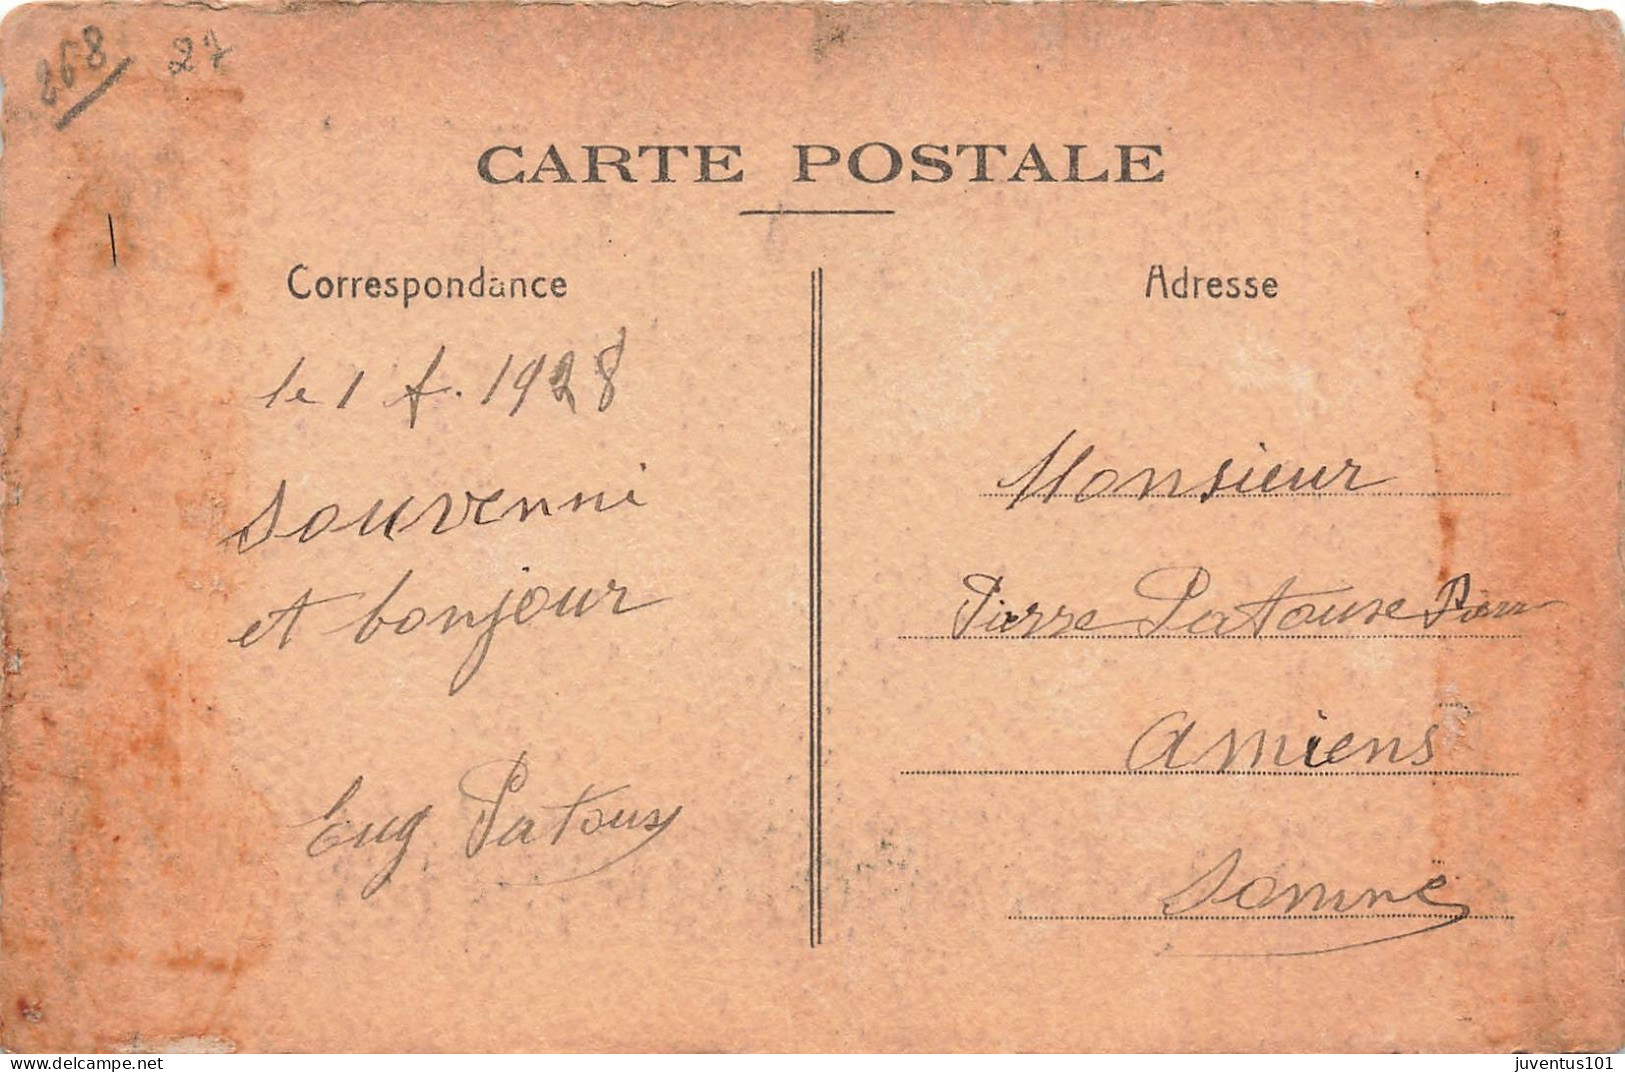 268 27
CARTE POSTALE
Correspondance
le 1 f. 1928
souvenni
et bonjour
Eug Patoux
Adresse
Monsieur
Pierre Patouse
Amiens
Somme
delcampe.net
juventus101